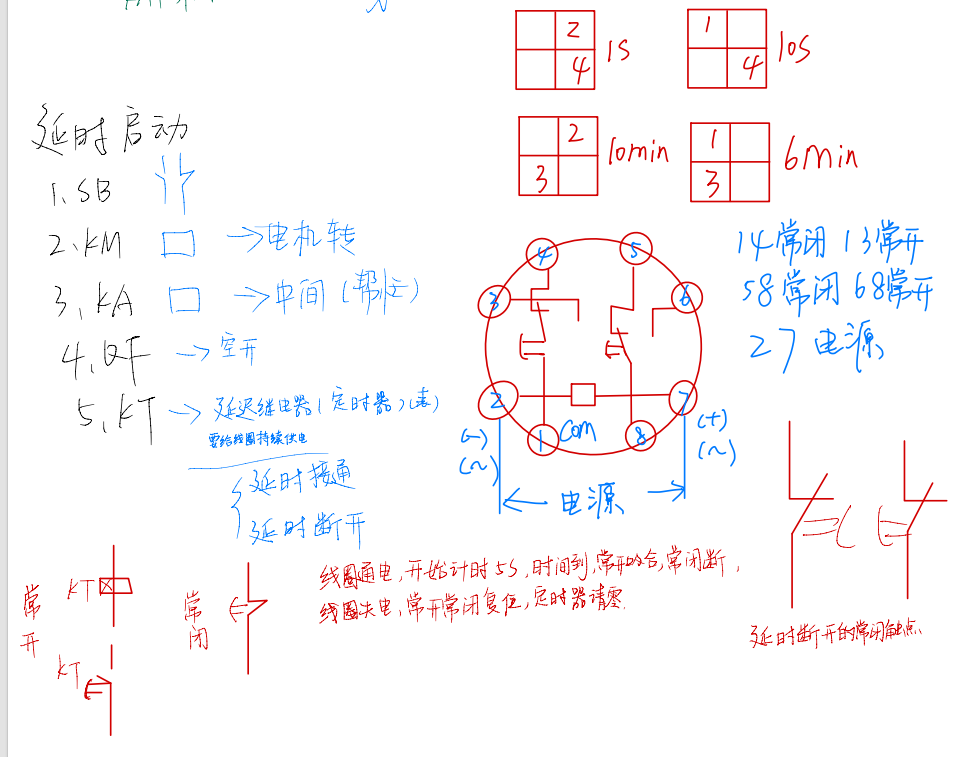 2
4 1s
1
4 10s
2
3 10min
1
3 6min
延时启动
1、SB
2、KM →电机转
3、KA →中间(帮忙)
4、QF →空开
5、KT →延迟继电器(定时器)(表)
要给线圈持续供电
延时接通
延时断开
4 5
3 6
2 7
1 com 8
(-) (+)
(~) (~)
电源
14常闭 13常开
58常闭 68常开
27 电源
常开
KT
KT
常闭
线圈通电,开始计时5S,时间到,常开吸合,常闭断,
线圈失电,常开常闭复位,定时器请零.
延时断开的常闭触点.